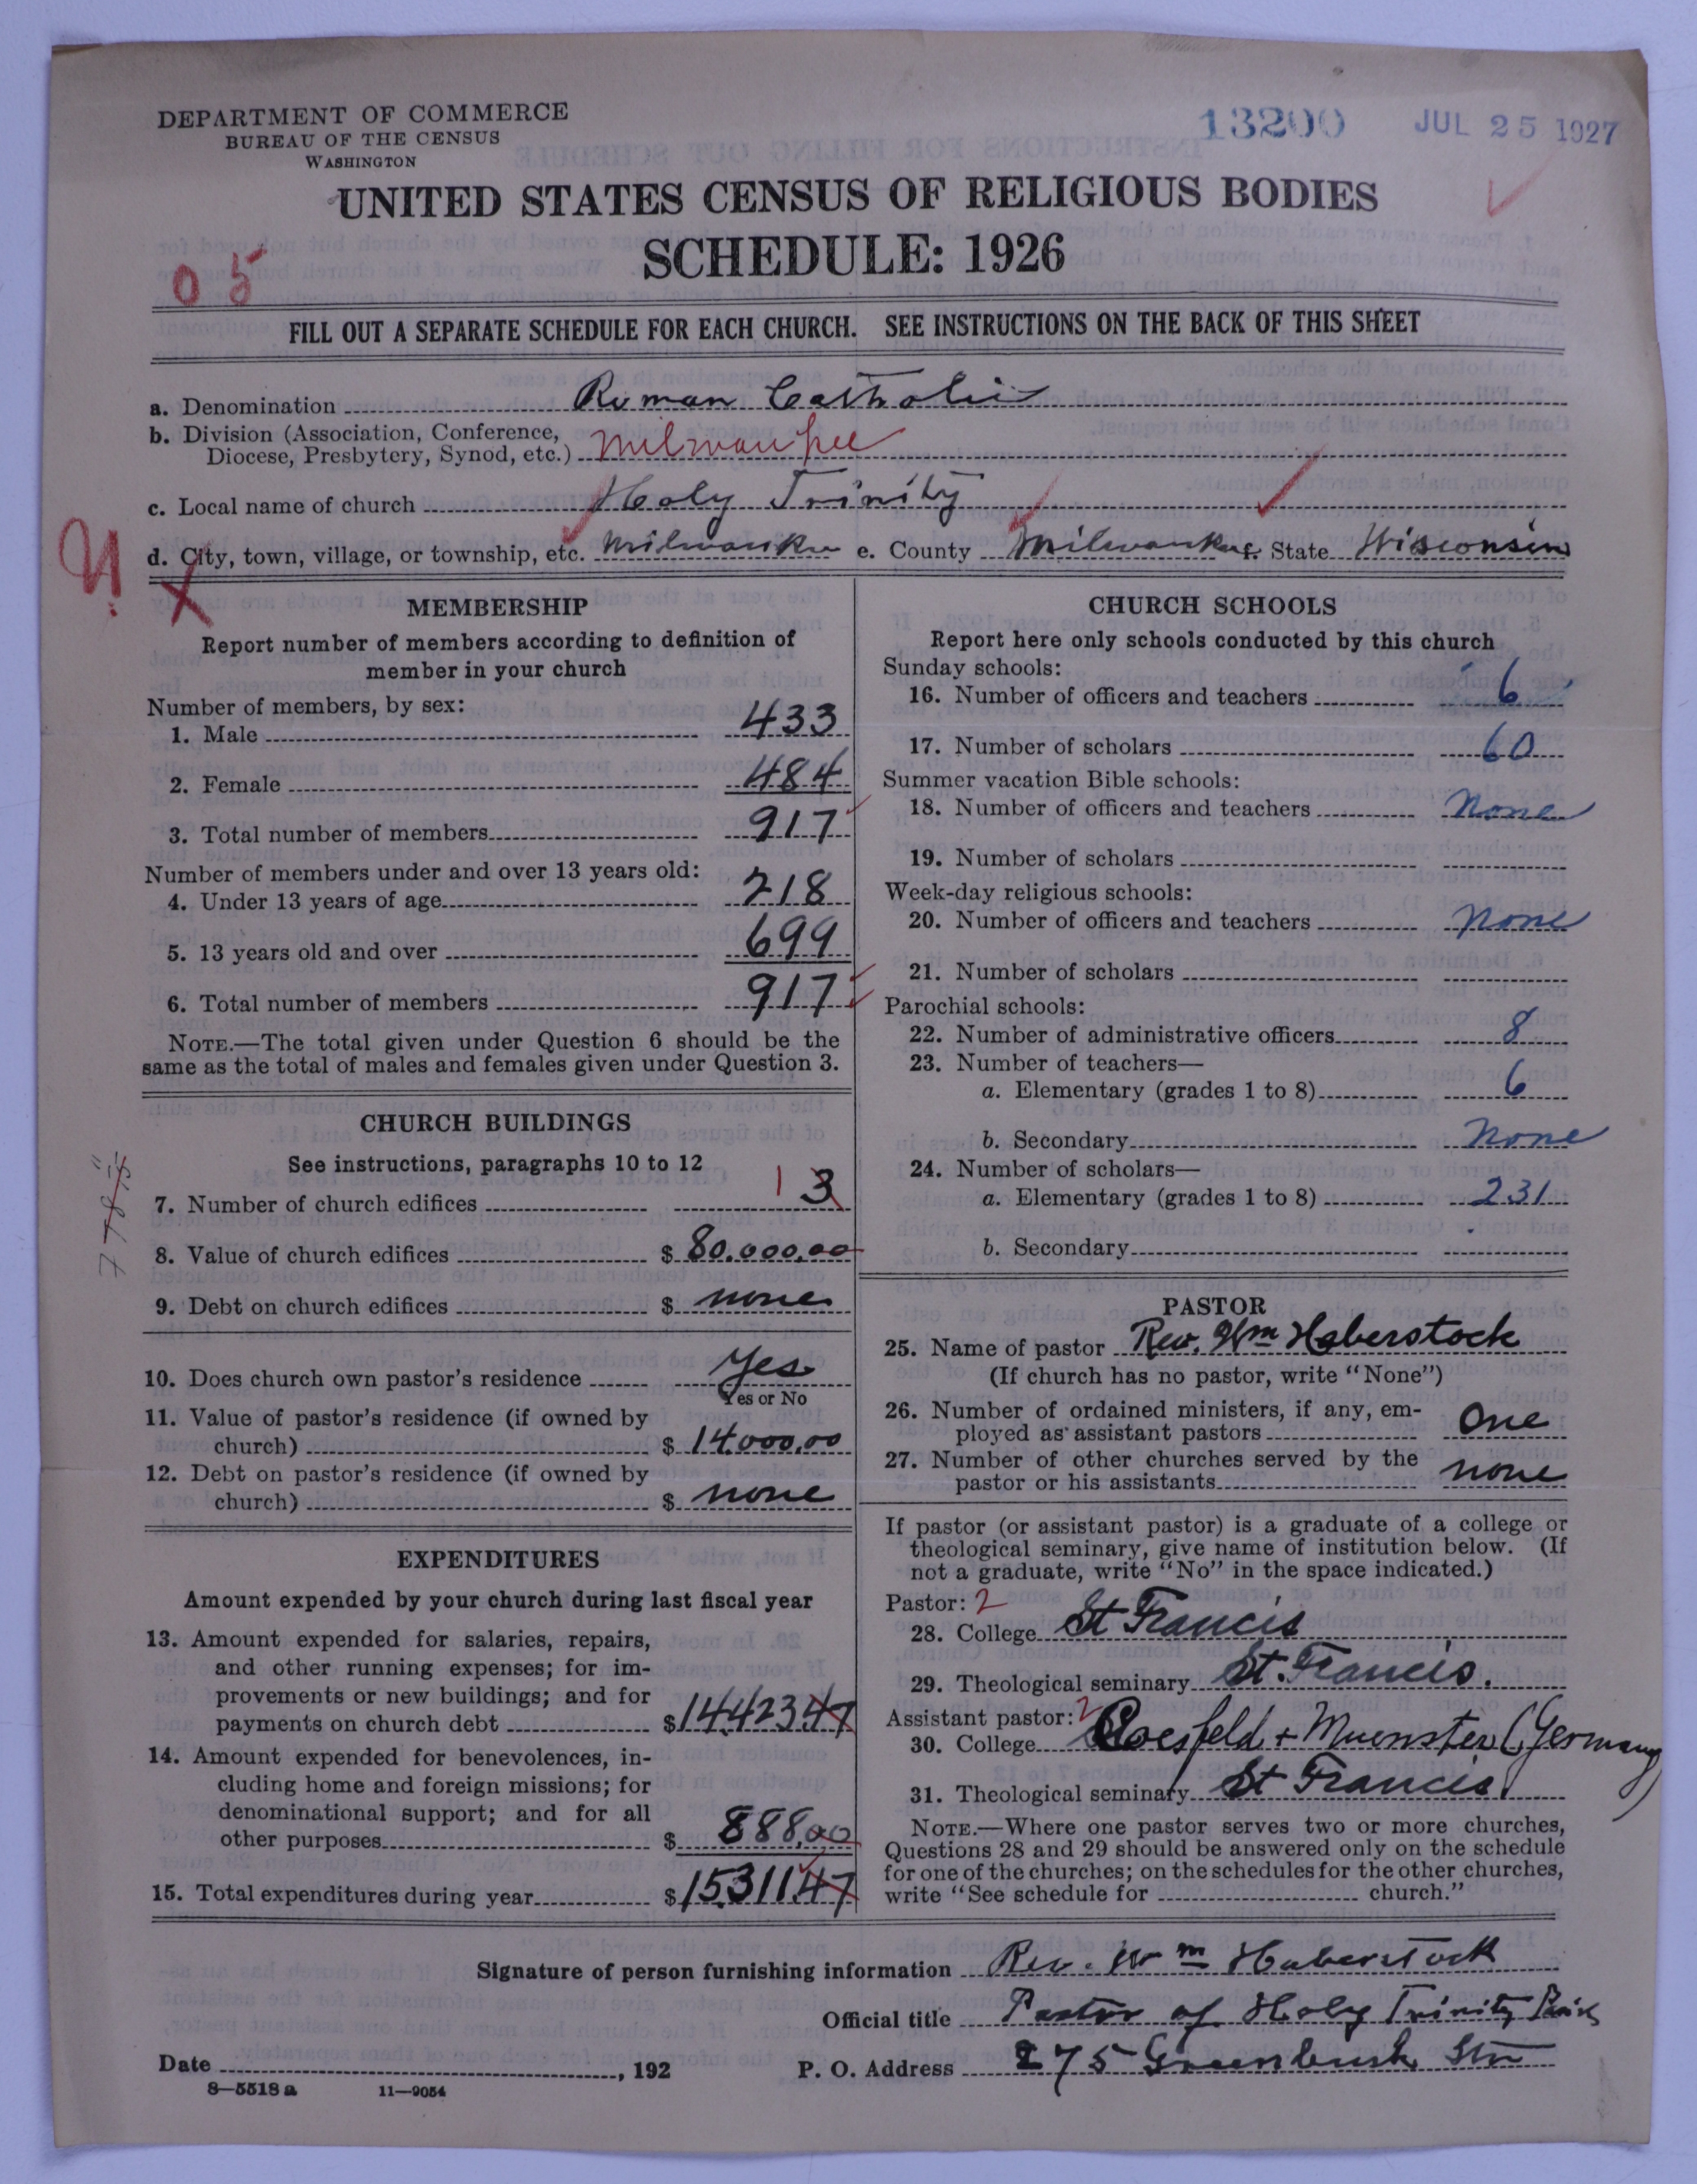 DEPARTMENT OF COMMERCE
BUREAU OF THE CENSUS
WASHINGTON
13200 JUL 25 1927
UNITED STATES CENSUS OF RELIGIOUS BODIES
SCHEDULE: 1926
05
FILL OUT A SEPARATE SCHEDULE FOR EACH CHURCH. SEE INSTRUCTIONS ON THE BACK OF THIS SHEET
a. Denomination Roman Catholic
b. Division (Association, Conference,
Diocese, Presbytery, Synod, etc.) Milwaukee
c. Local name of church Holy Trinity
d. City, town, village, or township, etc. Milwaukee e. County Milwaukee f. State Wisconsin
MEMBERSHIP
Report number of members according to definition of
member in your church
Number of members, by sex:
1. Male 433
2. Female 484
3. Total number of members 917
Number of members under and over 13 years old:
4. Under 13 years of age 218
5. 13 years old and over 699
6. Total number of members 917
NOTE.—The total given under Question 6 should be the
same as the total of males and females given under Question 3.
CHURCH BUILDINGS
See instructions, paragraphs 10 to 12
7. Number of church edifices 1 3
8. Value of church edifices $ 80.000.00
9. Debt on church edifices $ none
10. Does church own pastor's residence Yes
Yes or No
11. Value of pastor's residence (if owned by
church) $ 14000.00
12. Debt on pastor's residence (if owned by
church) $ none
EXPENDITURES
Amount expended by your church during last fiscal year
13. Amount expended for salaries, repairs,
and other running expenses; for im-
provements or new buildings; and for
payments on church debt $ 14423 47
14. Amount expended for benevolences, in-
cluding home and foreign missions; for
denominational support; and for all
other purposes $ 888.00
15. Total expenditures during year $ 15311.47
CHURCH SCHOOLS
Report here only schools conducted by this church
Sunday schools:
16. Number of officers and teachers 6
17. Number of scholars 60
Summer vacation Bible schools:
18. Number of officers and teachers None
19. Number of scholars
Week-day religious schools:
20. Number of officers and teachers None
21. Number of scholars
Parochial schools:
22. Number of administrative officers 8
23. Number of teachers—
a. Elementary (grades 1 to 8) 6
b. Secondary None
24. Number of scholars—
a. Elementary (grades 1 to 8) 231
b. Secondary
PASTOR
25. Name of pastor Rev. Wm Haberstock
(If church has no pastor, write "None")
26. Number of ordained ministers, if any, em-
ployed as assistant pastors One
27. Number of other churches served by the
pastor or his assistants none
If pastor (or assistant pastor) is a graduate of a college or
theological seminary, give name of institution below. (If
not a graduate, write "No" in the space indicated.)
Pastor: 2
28. College St Francis
29. Theological seminary St. Francis.
Assistant pastor: 2
30. College Coesfeld + Muenster (Germany)
31. Theological seminary St Francis
NOTE.—Where one pastor serves two or more churches,
Questions 28 and 29 should be answered only on the schedule
for one of the churches; on the schedules for the other churches,
write "See schedule for church."
Signature of person furnishing information Rev. Wm Haberstock
Official title Pastor of Holy Trinity Parish
Date , 192 P. O. Address 275 Greenbush Str
8—5518 a 11—9054